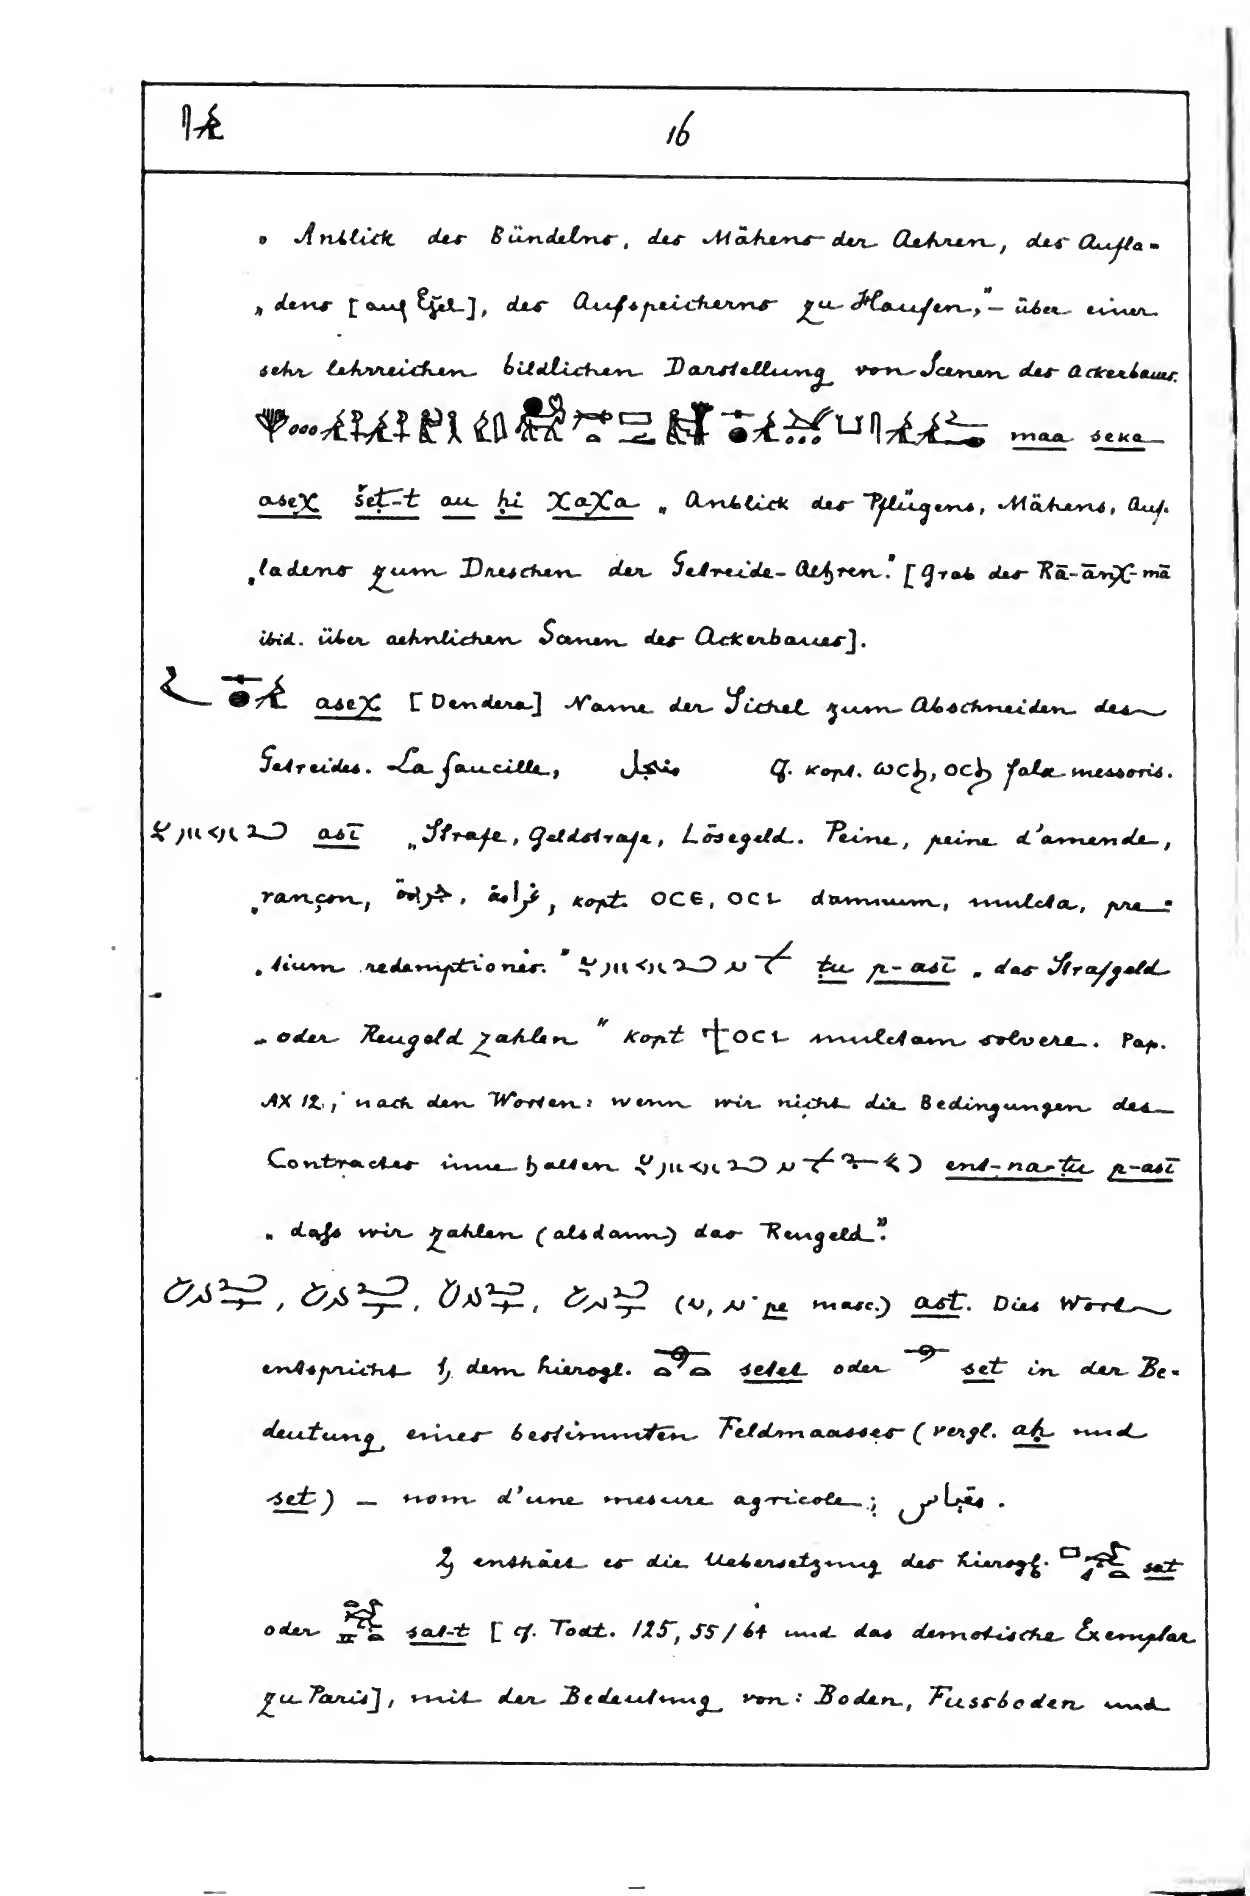 16
„ Anblick des Bündelns, des Mähens der Aehren, des Aufla-
„ dens [auf Esel], des Aufspeicherns zu Haufen,“ – über einer
sehr lehrreichen bildlichen Darstellung von Scenen des Ackerbaues.
maa seka
asex̱ šet-t au ḥi χaχa „ Anblick des Pflügens, Mähens, Auf-
„ladens zum Dreschen der Getreide-Aehren.“ [Grab des Rā-ānχ-mā
ibid. über aehnlichen Scenen des Ackerbaues].
aseχ [Dendera] Name der Sichel zum Abschneiden des
Getreides. La faucille, منجل Cf. kopt. ⲱⲥϧ, ⲟⲥϧ falx messoris.
asī „Strafe, Geldstrafe, Lösegeld. Peine, peine d'amende,
„rançon, غرامة, kopt. ⲟⲥⲉ, ⲟⲥⲓ damnum, mulcta, pre-
„tium redemptionis.“ ṭu p-asī „das Strafgeld
„oder Reugeld zahlen“ kopt ϯⲟⲥⲓ mulctam solvere. Pap.
AX 12, nach den Worten: wenn wir nicht die Bedingungen des
Contractes inne halten ent-na-ṭu p-asī
„ daſs wir zahlen (alsdann) das Reugeld“.
, , , (pe masc.) ast. Dies Wort
entspricht 1, dem hierogl. setet oder set in der Be-
deutung eines bestimmten Feldmaasses (vergl. aḥ und
set) – nom d'une mesure agricole; مقياس.
2, enthält es die Uebersetzung des hierogl. sat
oder sat-t [cf. Todt. 125, 55/64 und das demotische Exemplar
zu Paris], mit der Bedeutung von: Boden, Fussboden und